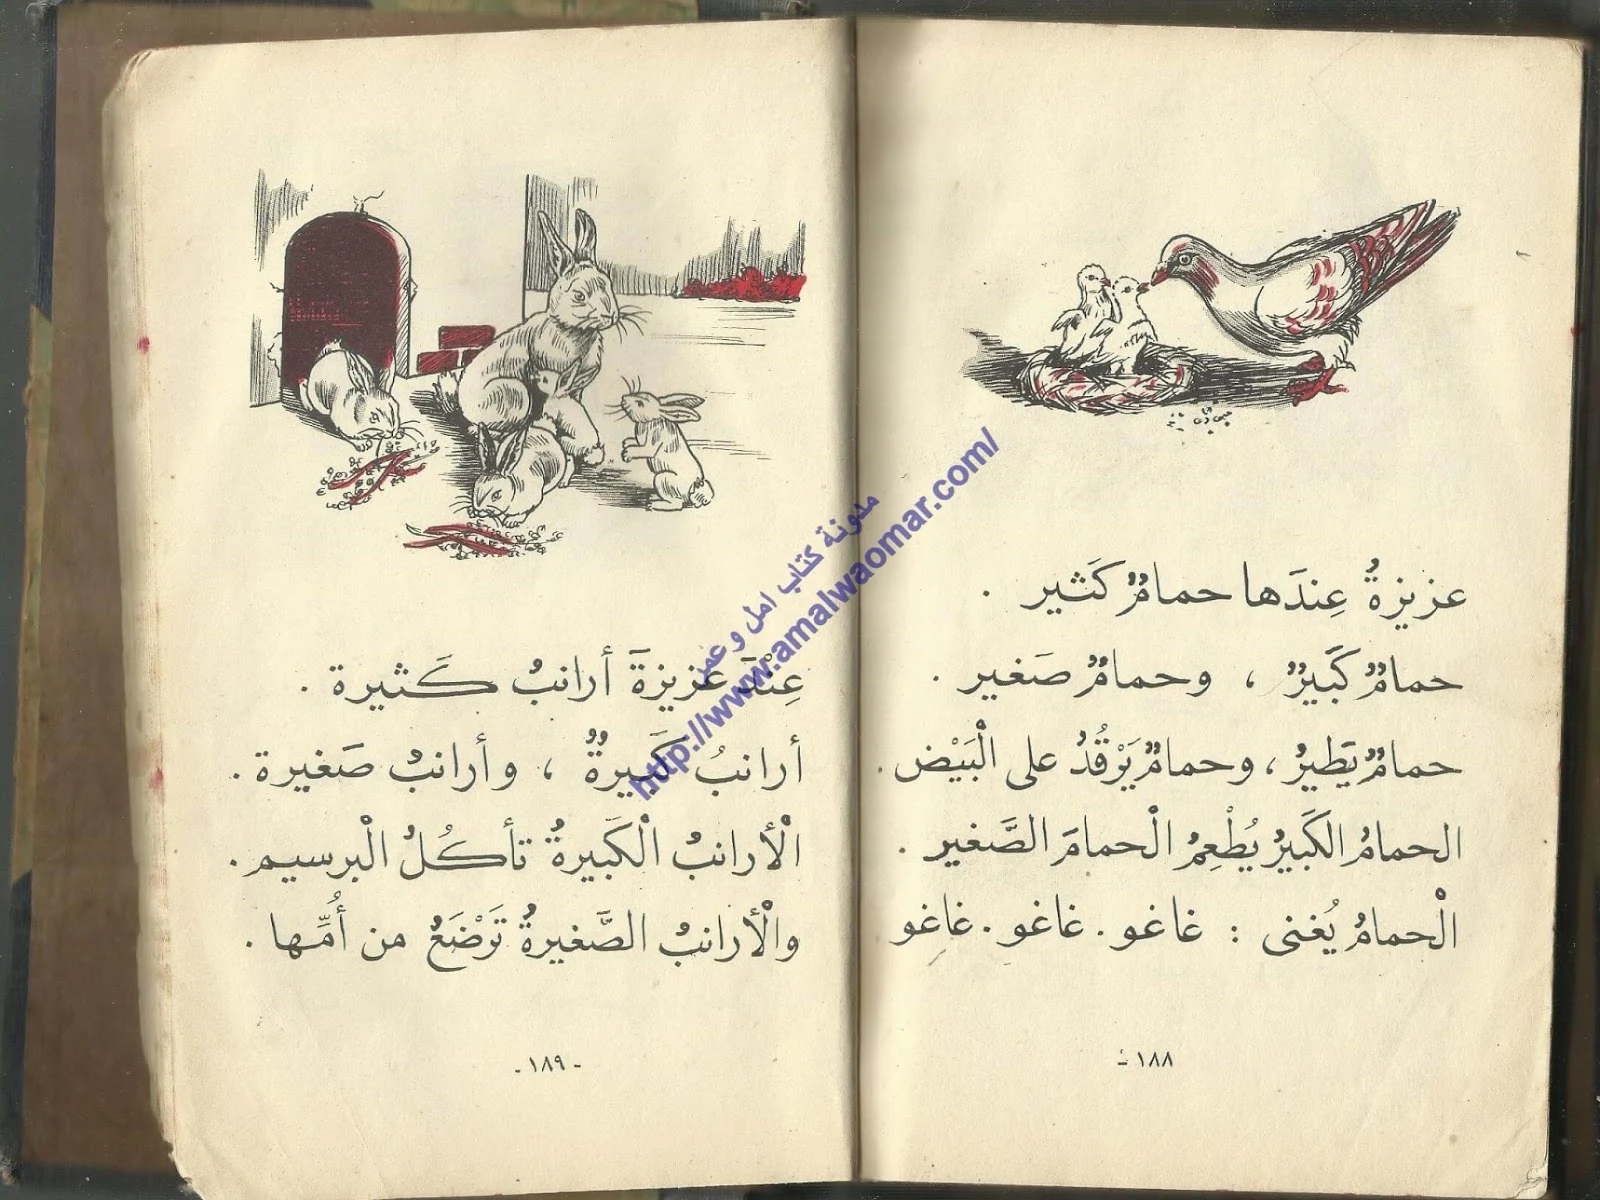 عزيزةُ عِندَها حمامٌ كَثير .
حمامٌ كَبيرٌ ، وحمامٌ صَغير .
حمامٌ يَطيرُ ، وحمامٌ يَرْقُدُ على الْبَيْض .
الحمامُ الكَبيرُ يُطْعِمُ الْحمامَ الصَّغير .
الْحمامُ يُغنى : غاغو . غاغو . غاغو
١٨٨ -
عِنْدَ عَزيزةَ أرانبُ كَثيرة .
أرانبُ كَبيرةٌ ، وأرانبُ صَغيرة .
الْأرانبُ الْكَبيرةُ تأكُلُ الْبرسيم .
والْأرانبُ الصَّغيرةُ تَرْضَعُ من أُمِّها .
- ١٨٩ -
مدونة كتاب امل وعمر
http://www.amalwaomar.com/